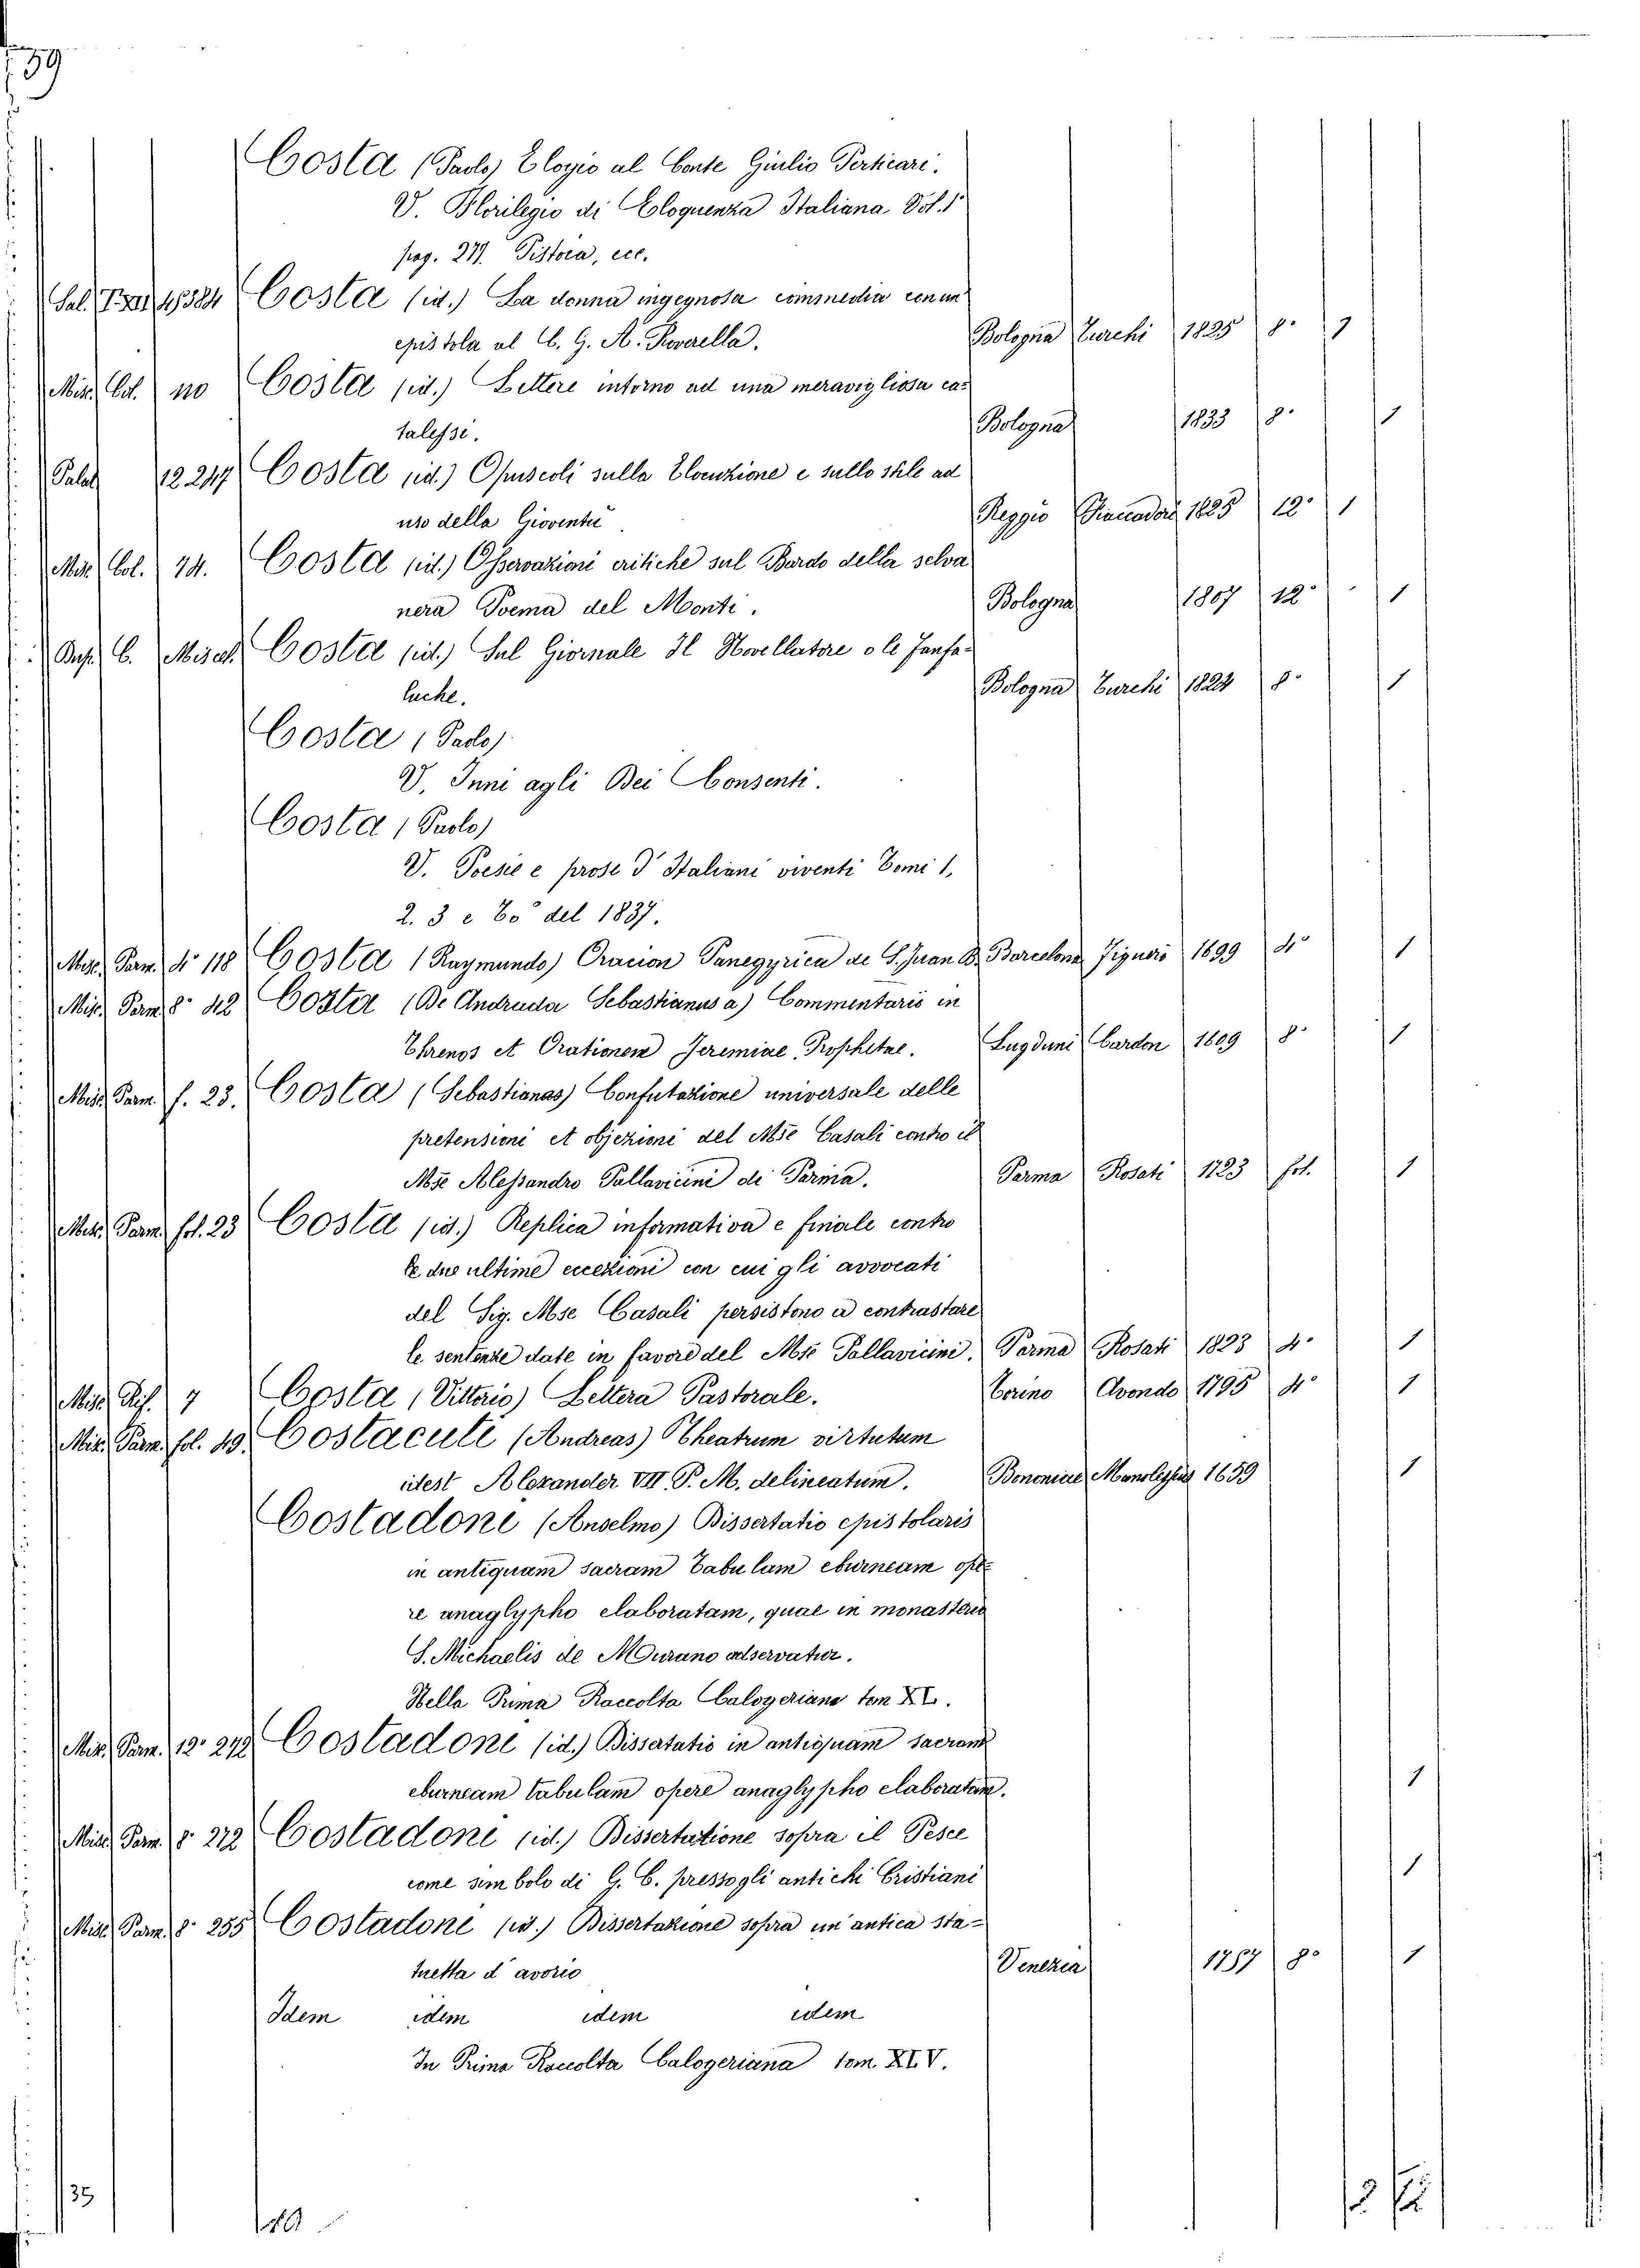 39
Costa (Paolo) Elogio al Conte Giulio Perticari.
V. Florilegio di Eloquenza Italiana Vol. 1°
pag. 271. Pistoia, ecc.
Sal. 15384 Costa (id.) La donna ingegnosa commedia con un
epistola al C. G. A. Roverella. Bologna Turchi 1825 8° 1
Misc. Col. 110 Costa (id.) Lettere intorno ad una meravigliosa ca=
talessi. Bologna 1833 8° 1
Palat 12247 Costa (id.) Opuscoli sulla Elocuzione e sullo stile ad
uso della Gioventù Reggio 1825 12° 1
Misc. Col. 74. Costa (id.) Osservazioni critiche sul Bardo della selva
nera Poema del Monti. Bologna 1807 12° 1
C. Miscel. Costa (id.) Sul Giornale Il Novellatore o le Fanfa=
luche. Bologna Turchi 1824 8° 1
Costa (Paolo)
V. Inni agli Dei Consenti.
Costa (Paolo)
V. Poesie e prose d'Italiani viventi Tomi 1,
2. 3 e 6° del 1837.
Misc. Parm. 4° 118 Costa (Raymundo) Oracion Panegyrica de S. Juan B. Barcelona Figuerò 1699 4° 1
Misc. Parm 8° 42 Costa (De Andrada Sebastianus a) Commentaris in
Threnos et Orationem Jeremiae Prophetae. Lugduni Cardon 1609 8° 1
Misc. Parm. f. 23. Costa (Sebastianas) Confutazione universale delle
pretensioni et objezioni del Mse Casali contro il
Mse Alessandro Pallavicini di Parma. Parma Rosati 1723 fol. 1
Misc. Parm. fol. 23 Costa (id.) Replica informativa e finale contro
le due ultime eccezioni con cui gli avvocati
del Sig. Mse Casali persistono a contrastare
le sentenze date in favore del Mse Pallavicini. Parma Rosati 1823 4° 1
Misc. 7 Costa (Vittorio) Lettera Pastorale. Torino Avondo 1795 4° 1
Mis. Parm. fol. 49. Costacuti (Andreas) Theatrum virtutum
idest Alexander VII. P. M. delineatum. Bononiae Manolessius 1659 1
Costadoni (Anselmo) Dissertatio epistolaris
in antiquam sacram Tabulam eburneam ope=
re anaglypho elaboratam, quae in monasterio
S. Michaelis de Murano adservatur.
Nella Prima Raccolta Calogeriana tom XL.
Mis. Parm. 12° 272 Costadoni (id.) Dissertatio in antiquam sacram
eburneam tabulam opere anaglypho elaboratam. 1
Misc. Parm. 8° 272 Costadoni (id.) Dissertatione sopra il Pesce
come simbolo di G. C. presso gli antichi Cristiani 1
Misc. Parm. 8° 255 Costadoni (id.) Dissertazione sopra un'antica sta=
tuetta d'avorio Venezia 1757 8° 1
Idem idem idem idem
In Prima Raccolta Calogeriana tom. XLV.
35